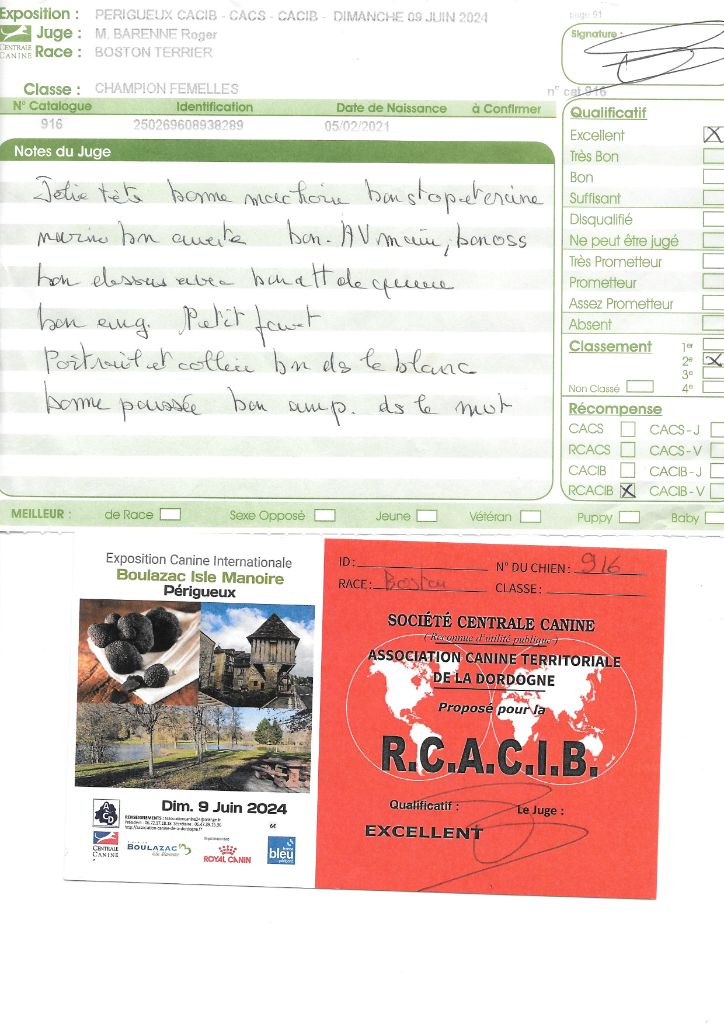 Exposition : PERIGUEUX CACIB - CACS - CACIB - DIMANCHE 09 JUIN 2024 page 91
CENTRALE CANINE
Juge : M. BARENNE Roger
Race : BOSTON TERRIER
Signature :
Classe : CHAMPION FEMELLES n° cat 916
N° Catalogue Identification Date de Naissance à Confirmer
916 250269608938289 05/02/2021
Notes du Juge
Jolie tête bonne machoire bon stop et crâne
bon bon. AV main, bon oss
bon dessus avec bon att de queue
bon ang. Petit fouet
Poitrail et collier bn ds le blanc
bonne poussée bon amp. ds le mvt
Qualificatif
Excellent X
Très Bon
Bon
Suffisant
Disqualifié
Ne peut être jugé
Très Prometteur
Prometteur
Assez Prometteur
Absent
Classement 1er
2e X
3e
Non Classé 4e
Récompense
CACS CACS-J
RCACS CACS-V
CACIB CACIB-J
RCACIB X CACIB-V
MEILLEUR : de Race Sexe Opposé Jeune Vétéran Puppy Baby
Exposition Canine Internationale
Boulazac Isle Manoire
Périgueux
Dim. 9 Juin 2024
6€
CENTRALE CANINE
BOULAZAC
ROYAL CANIN
france bleu périgord
ID : N° DU CHIEN : 916
RACE : Boston CLASSE :
SOCIÉTÉ CENTRALE CANINE
( Reconnue d'utilité publique )
ASSOCIATION CANINE TERRITORIALE
DE LA DORDOGNE
Proposé pour la
R.C.A.C.I.B.
Qualificatif : Le Juge :
EXCELLENT